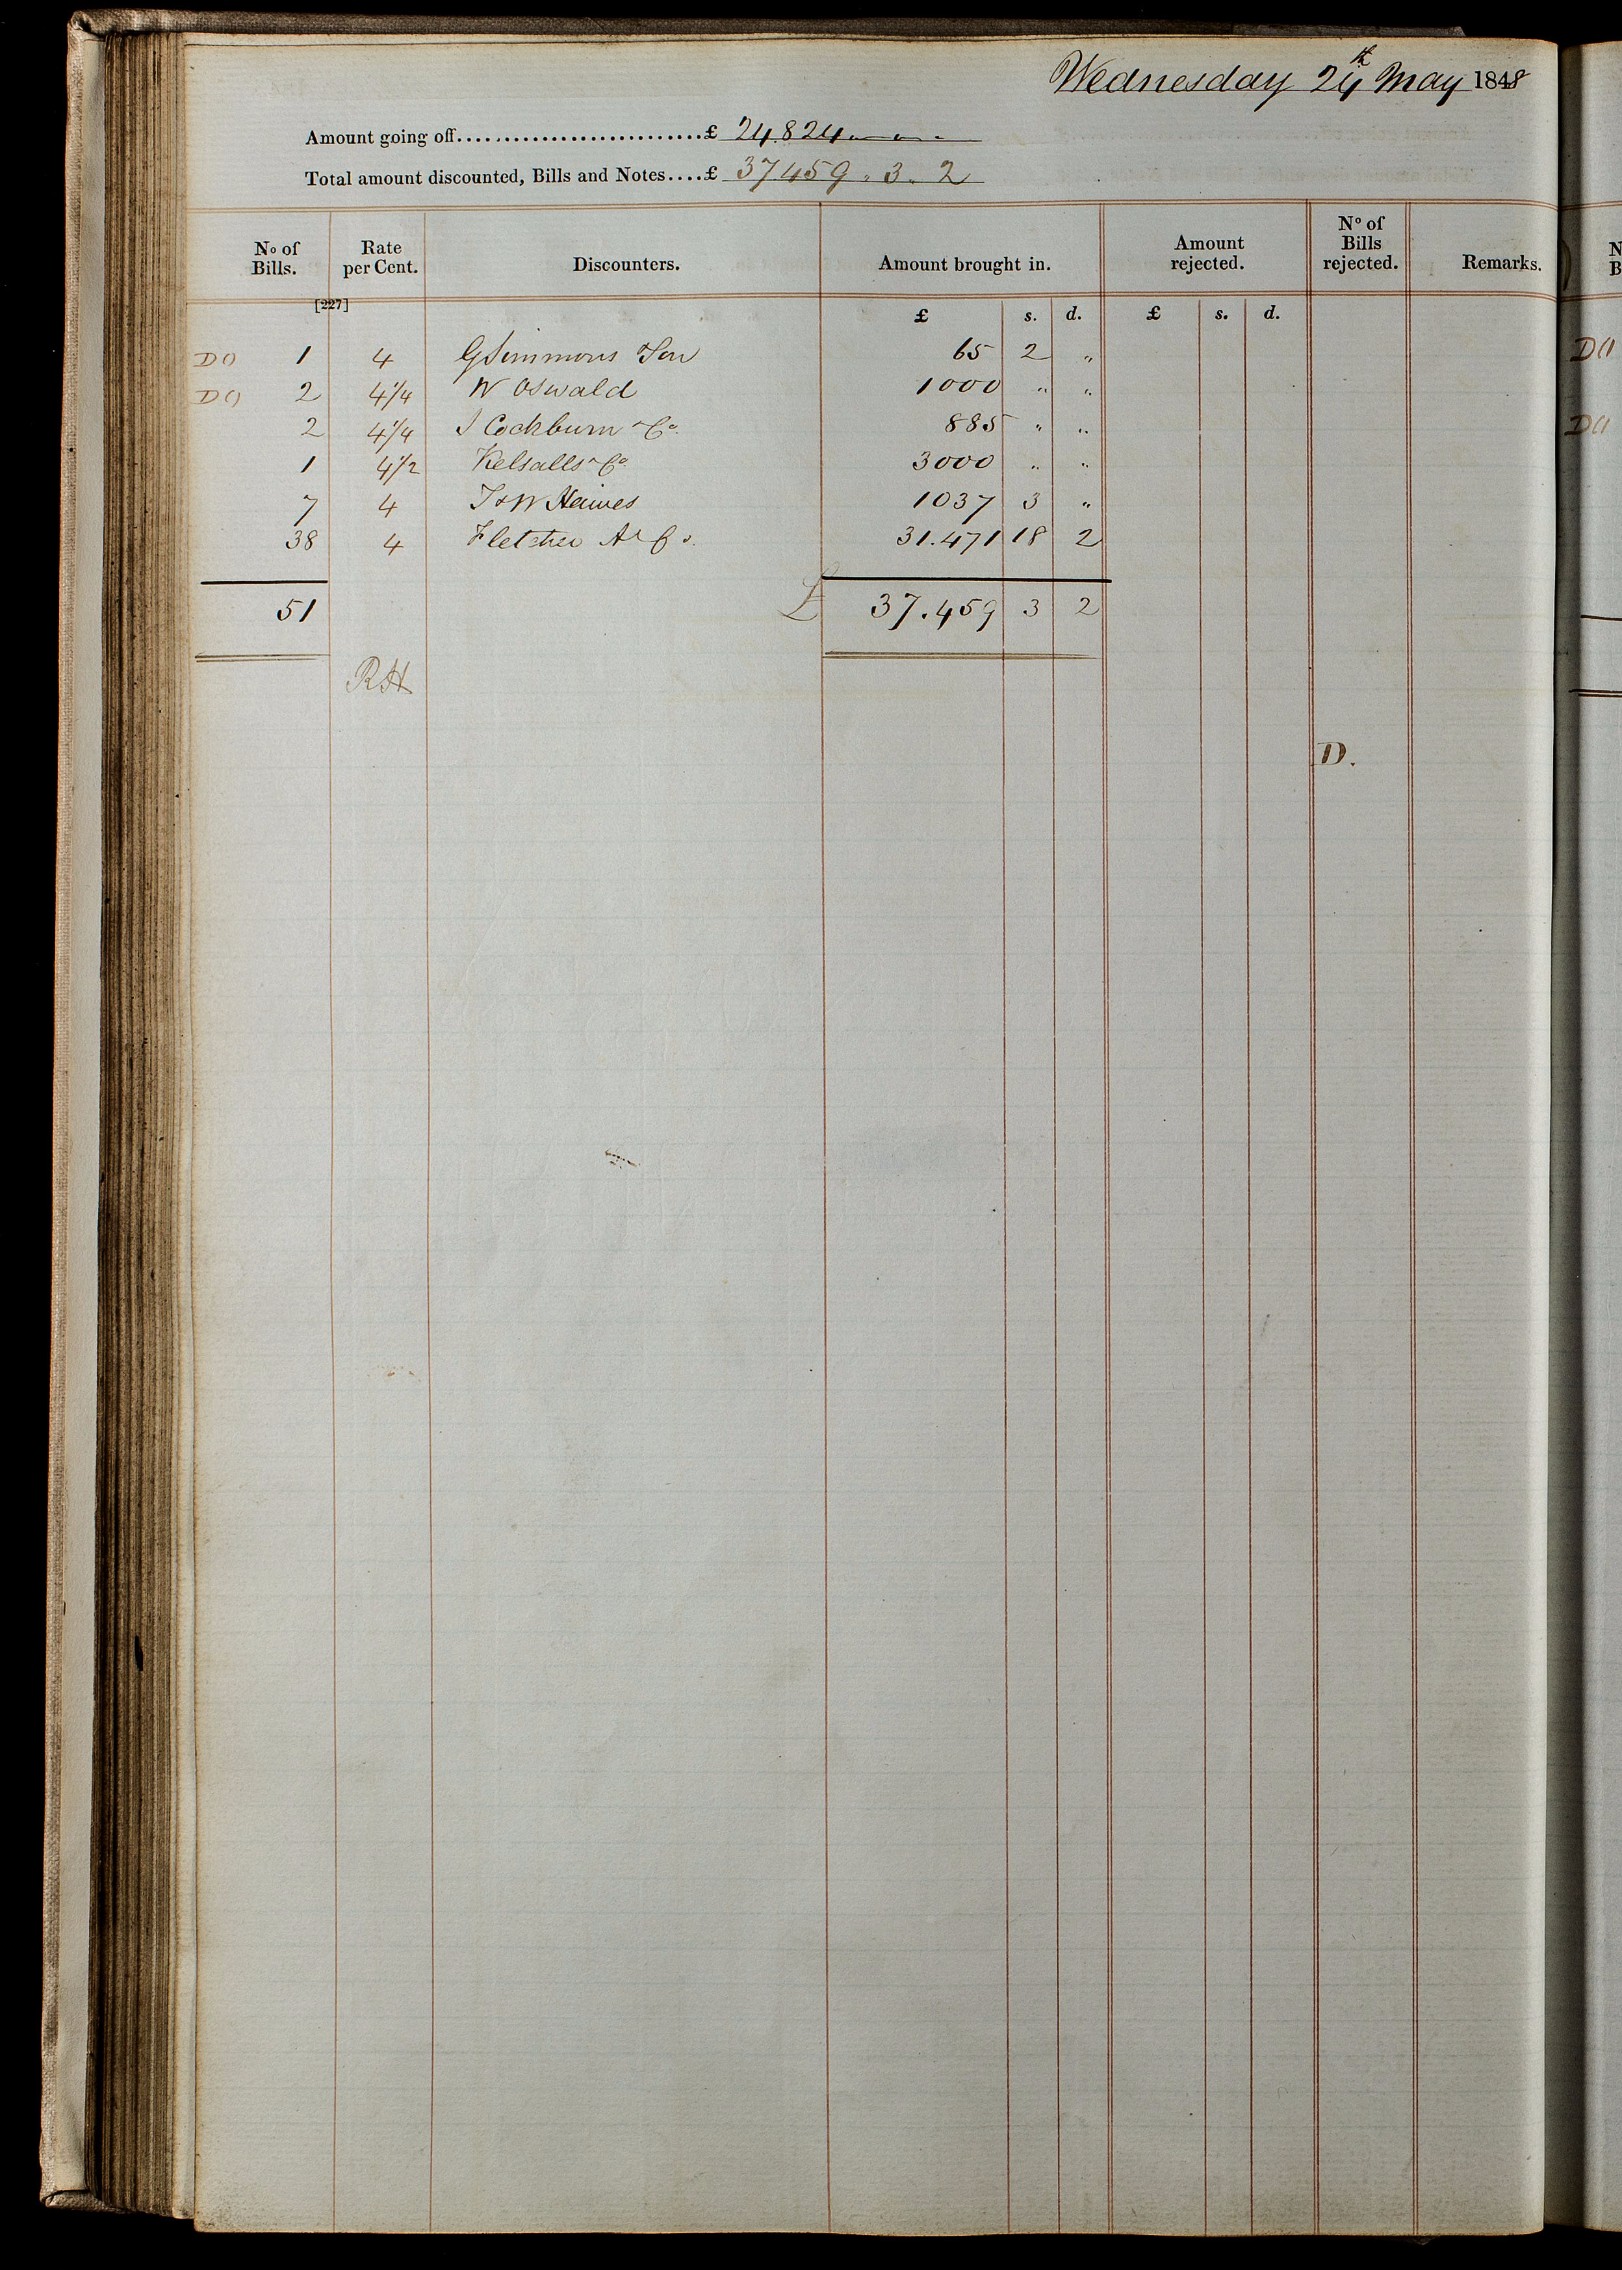 Wednesday 24th May 1848
Amount going off..........................£ 24.824 " "
Total amount discounted, Bills and Notes....£ 37459 . 3 . 2
No of Bills. Rate per Cent. Discounters. Amount brought in. Amount rejected. No of Bills rejected. Remarks.
[227]
£ s. d. £ s. d.
DO 1 4 G Simmons & Son 65 2 "
DO 2 4 1/4 W Oswald 1000 " "
2 4 1/4 Cockburn & Co. 885 " "
1 4 1/2 Kelsalls & Co 3000 " "
7 4 & W 1037 3 "
38 4 Fletcher A & Co. 31.471 18 2
51 £ 37.459 3 2
RH
D.